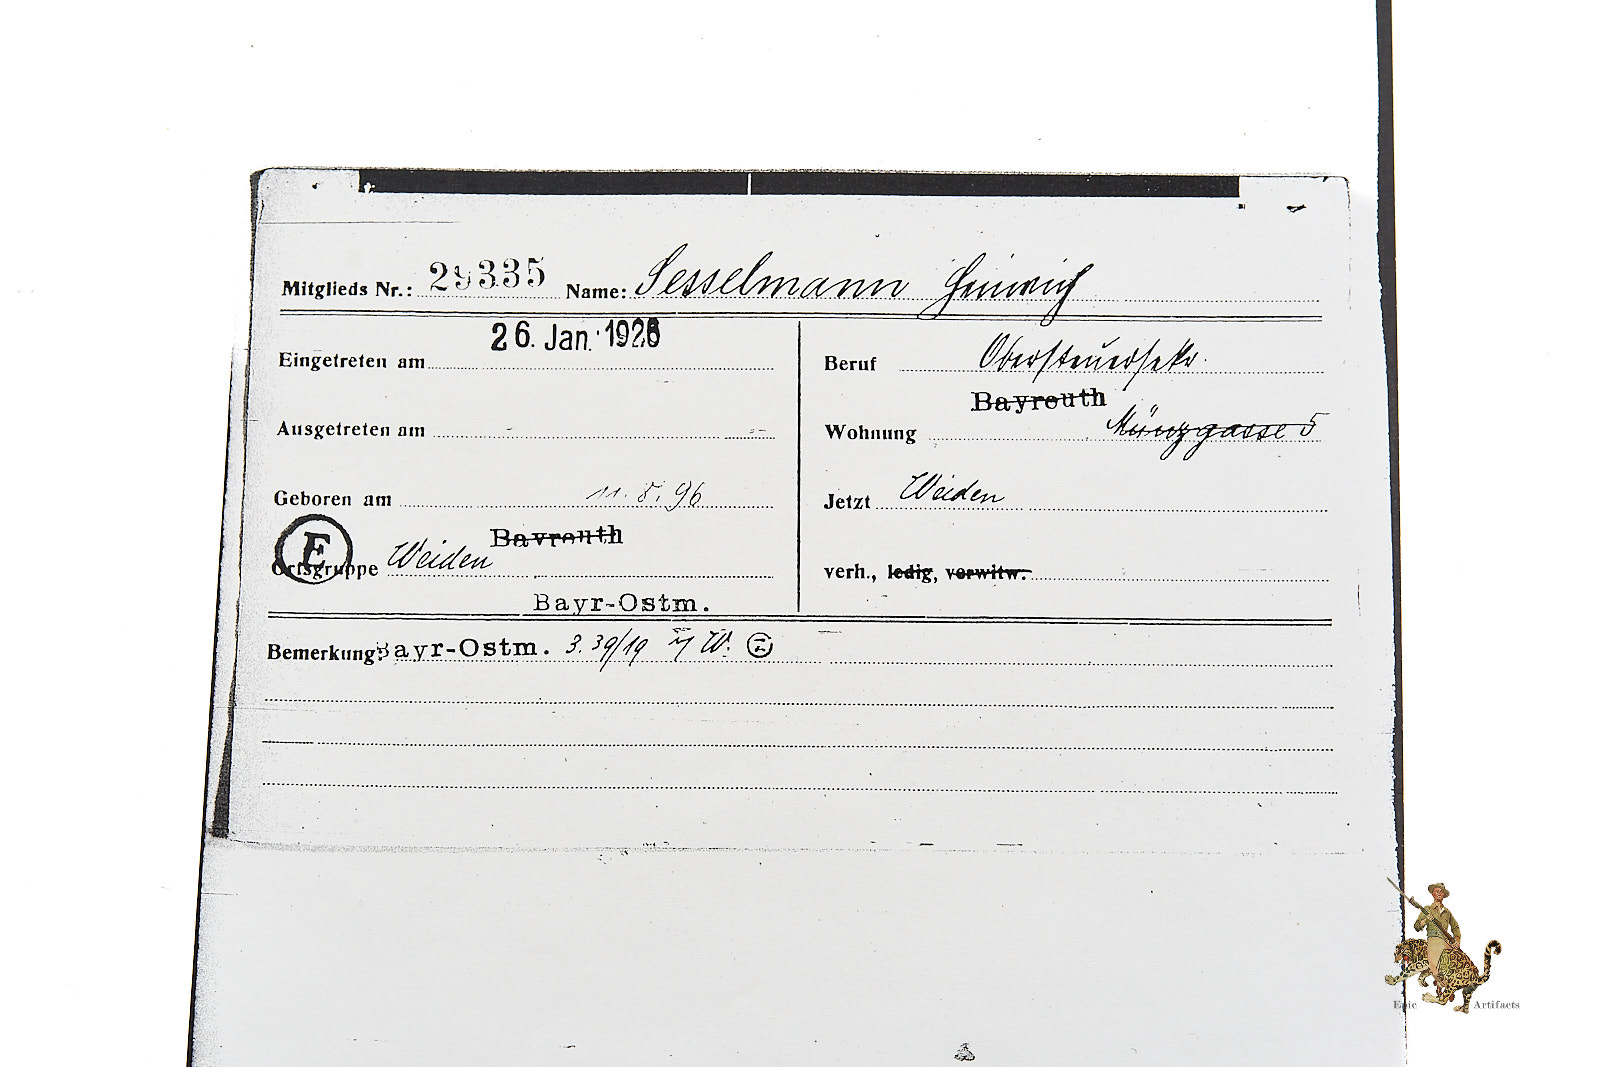 Mitglieds Nr.: 29335 Name: Sesselmann Heinrich
Eingetreten am 26. Jan. 1926
Beruf Obersteuersekr.
Bayreuth
Ausgetreten am
Wohnung Münzgasse 5
Geboren am 11. 8. 96
Jetzt Weiden
E
Bayreuth
Ortsgruppe Weiden
verh., ledig, verwitw.
Bayr-Ostm.
Bemerkung: Bayr-Ostm. 3.39/19 W.
Epic Artifacts